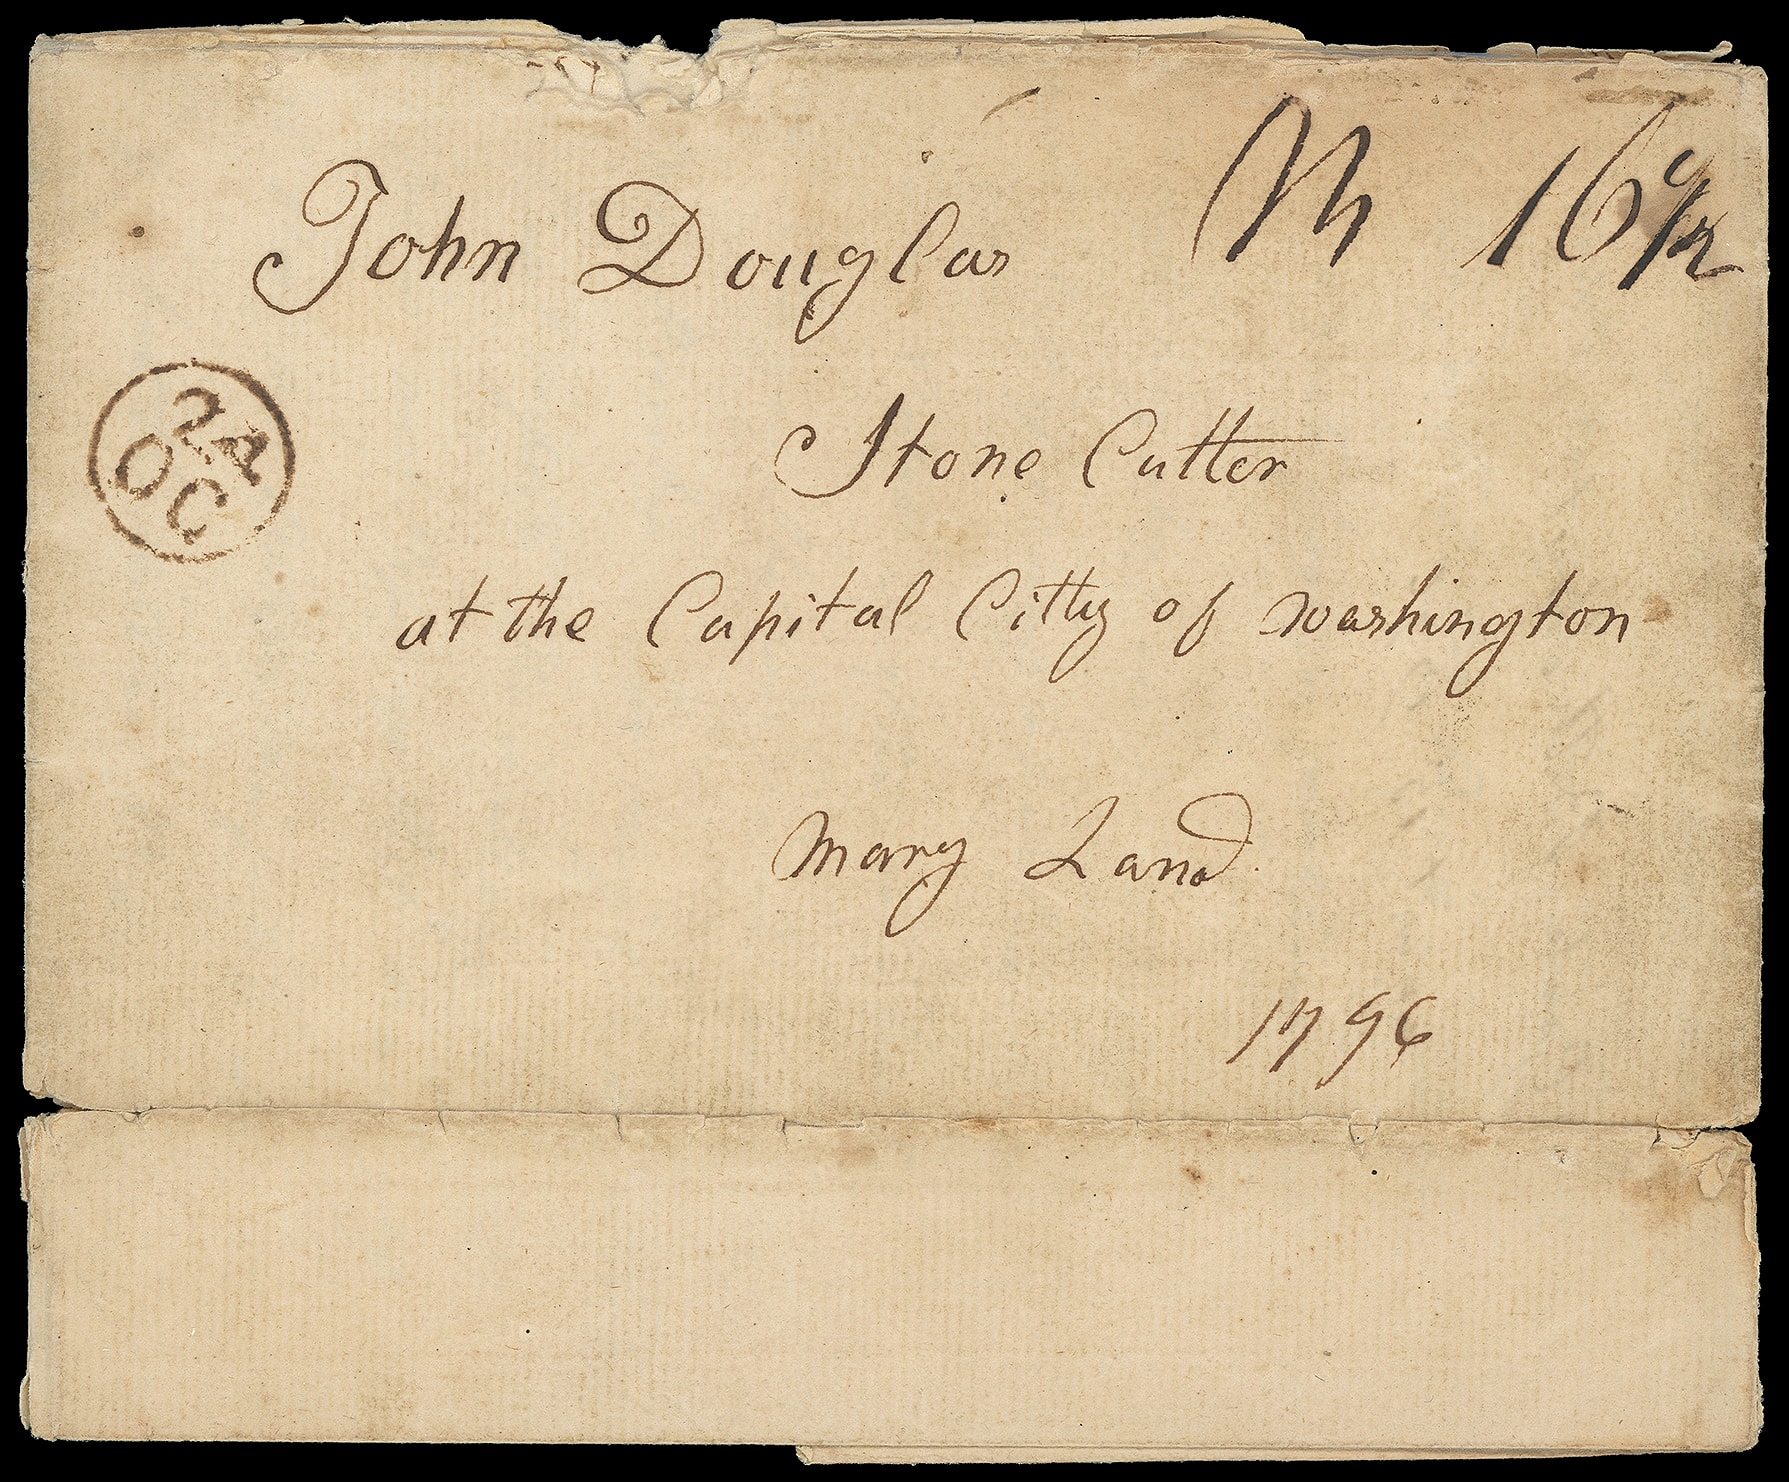 John Douglas
16
24
OC
Stone Cutter
at the Capital Citty of washington
Mary Land
1796